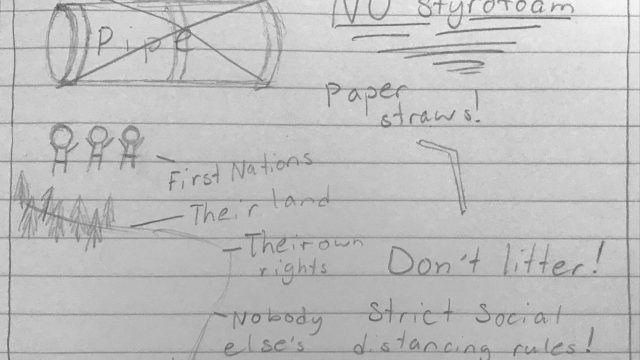 Pipe
NO Styrofoam
Paper
straws!
First Nations
Their land
Their own
rights
Don't litter!
Nobody
else's
Strict Social
distancing rules!